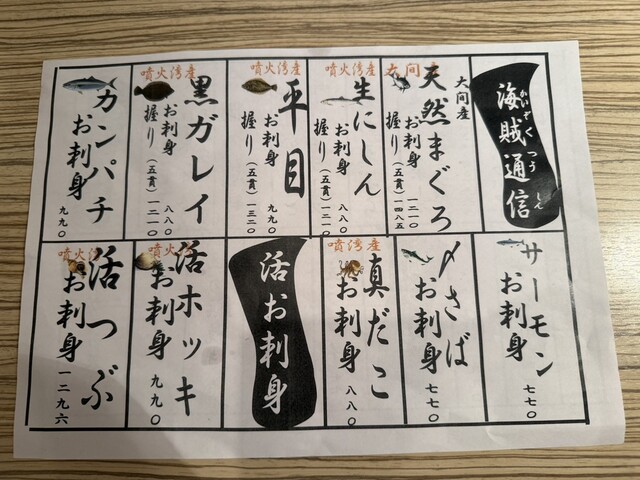 海賊通信
かいぞくつうしん
大間産
大間
天然まぐろ
お刺身 一二一〇
握り（五貫）一四八五
噴火湾産
生にしん
お刺身 八八〇
握り（五貫）一二一〇
噴火湾産
平目
お刺身 九九〇
握り（五貫）一三二〇
噴火湾産
黒ガレイ
お刺身 八八〇
握り（五貫）一二一〇
カンパチ
お刺身
九九〇
サーモン
お刺身
七七〇
〆さば
お刺身
七七〇
噴火湾産
真だこ
お刺身
八八〇
活お刺身
噴火
活ホッキ
お刺身
九九〇
噴火湾
活つぶ
お刺身
一二九六